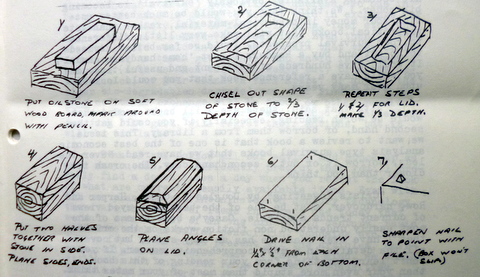 1/
2/
3/
PUT OILSTONE ON SOFT
WOOD BOARD, MARK AROUND
WITH PENCIL.
CHISEL OUT SHAPE
OF STONE TO 2/3
DEPTH OF STONE.
REPEAT STEPS
1 & 2 FOR LID.
MAKE 1/3 DEPTH.
4/
5/
6/
7/
PUT TWO HALVES
TOGETHER WITH
STONE IN SIDE.
PLANE SIDES, ENDS.
PLANE ANGLES
ON LID.
DRIVE NAIL IN
FROM EACH
CORNER OF BOTTOM.
SHARPEN NAIL
TO POINT WITH
FILE. (BOX WON'T
SLIP)